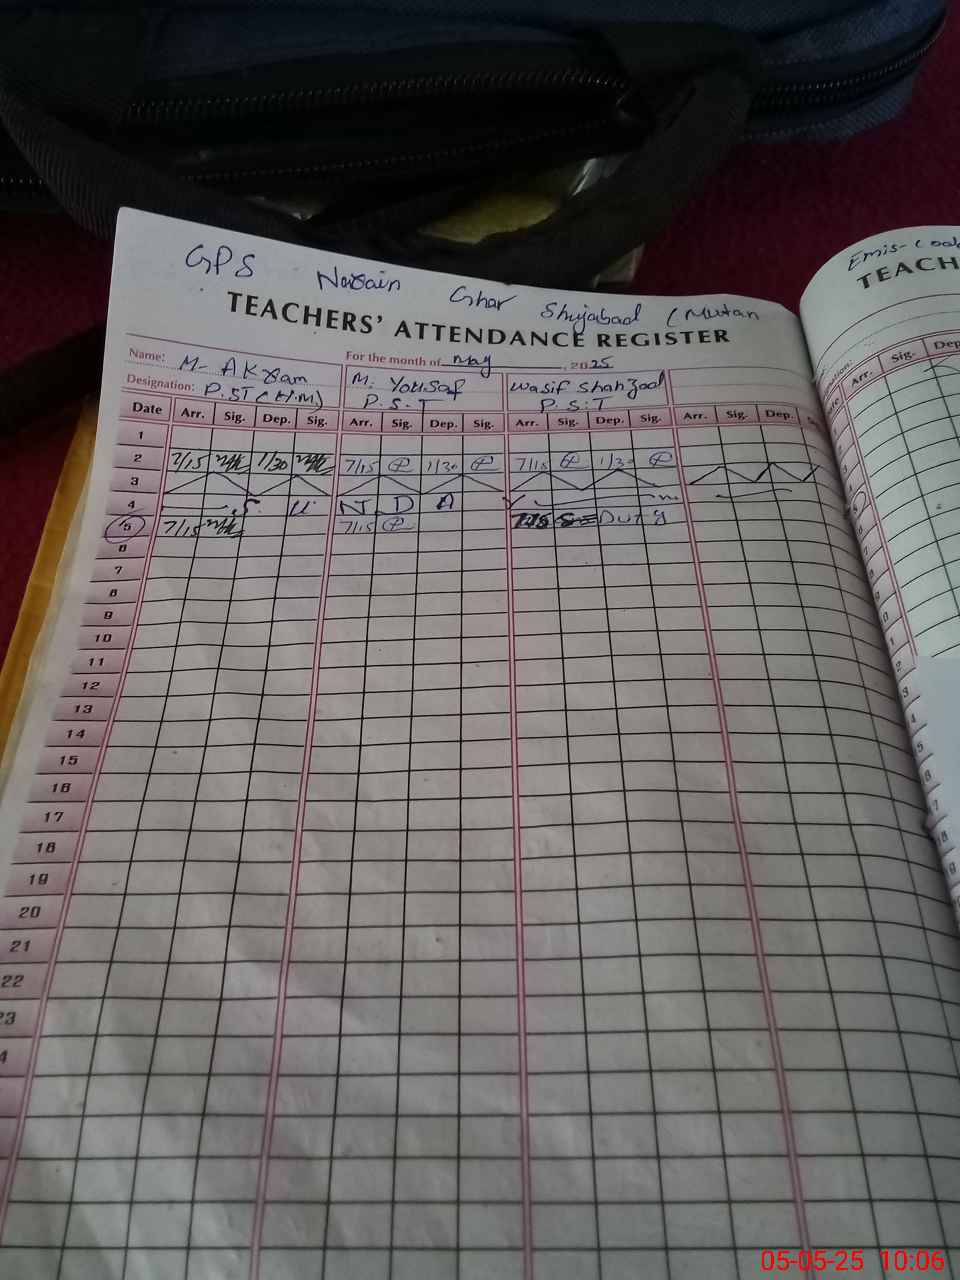 GPS Narain Ghar Shujabad (Multan
TEACHERS' ATTENDANCE REGISTER
Name: M. AKram
Designation: P.ST (H.M)
For the month of May, 2025
M. Yousaf
P.S.T
Wasif Shahzad
P.S.T
Date Arr. Sig. Dep. Sig. Arr. Sig. Dep. Sig. Arr. Sig. Dep. Sig. Arr. Sig. Dep.
1
2 7/15 1/30 7/15 1/30 7/15 1/30
3
4 S U N D A Y
5 7/15 7/15 Duty
6
7
8
9
10
11
12
13
14
15
16
17
18
19
20
21
22
23
Emis-Cod
TEACH
Arr. Sig. Dep
05-05-25 10:06